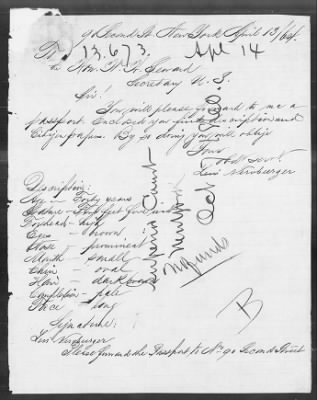 90 Second St. New York April 13/64.
13,673. Apl 14
To the Hon. W. H. Seward
Secretary U. S.
Sir!
You will please forward to me a
passport. Enclosed you find description and
Citizen papers. By so doing you will oblige
Yours
obdt. Servt.
Levi
Discription:
Age — Forty years
Stature — Five feet five inches
Forehead — high
Eyes — brown
Nose — prominent
Mouth — small
Chin — oval
Hair — dark
Complexion — pale
Face — long
Signature:
Levi
Please forward the Passport to No. 90 Second Street
Superior Court
New York
Oct
B